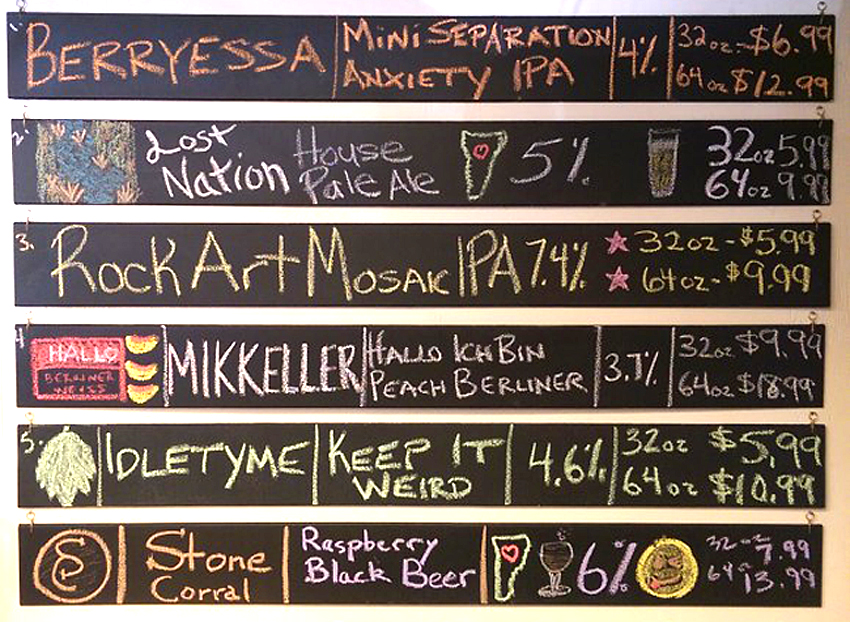 1.
BERRYESSA
MINI SEPARATION
ANXIETY IPA
4%
32oz-$6.99
64oz $12.99
2.
Lost
Nation
House
Pale Ale
5%
32oz 5.99
64oz 9.99
3.
Rock Art Mosaic IPA 7.4%
32oz-$5.99
64oz-$9.99
4
HALLO
BERLINER
WEISS
MIKKELLER
HALLO ICH BIN
PEACH BERLINER
3.7%
32oz $9.99
64oz $18.99
5.
IDLETYME
KEEP IT
WEIRD
4.6%
32oz $5.99
64oz $10.99
SC
Stone
Corral
Raspberry
Black Beer
6%
32-7.99
64-13.99